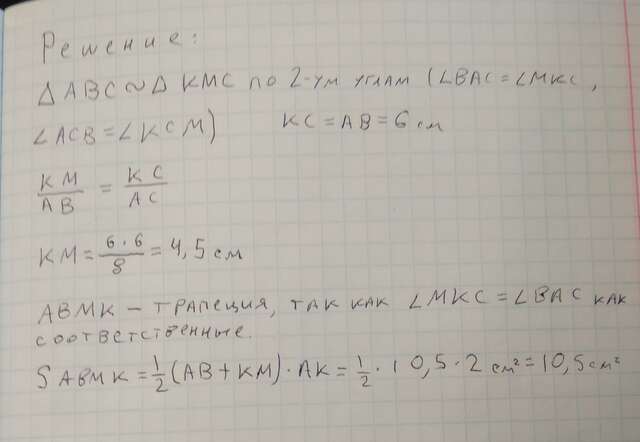 Решение:
△ABC ∼ △KMC по 2-ум углам (∠BAC = ∠MKC,
∠ACB = ∠KCM) KC = AB = 6 см
KM/AB = KC/AC
KM = 6·6/8 = 4,5 см
ABMK – трапеция, так как ∠MKC = ∠BAC как
соответственные.
S ABMK = 1/2 (AB + KM) · AK = 1/2 · 10,5 · 2 см² = 10,5 см²